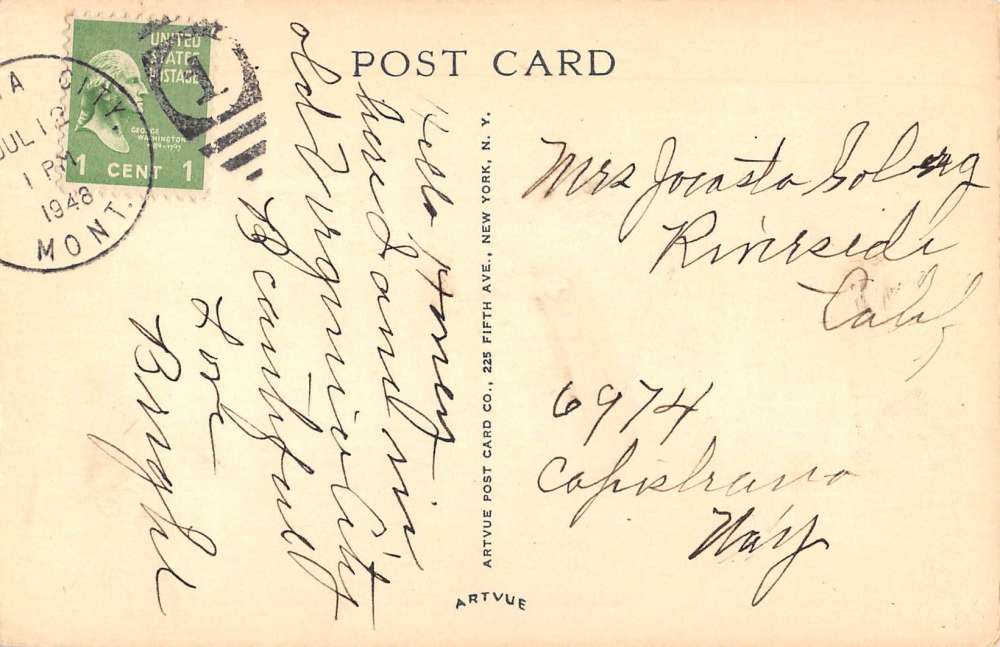 POST CARD
UNITED
STATES
POSTAGE
GEORGE
WASHINGTON
1 CENT 1
A CITY,
JUL 12
1 PM
1948
MONT.
Hello Honey
here I am in
old Virginia City
Beautiful
Love
ARTVUE POST CARD CO., 225 FIFTH AVE., NEW YORK, N. Y.
ARTVUE
Mrs Jocasta
Riverside
Calif
6974
Capistrano
Way